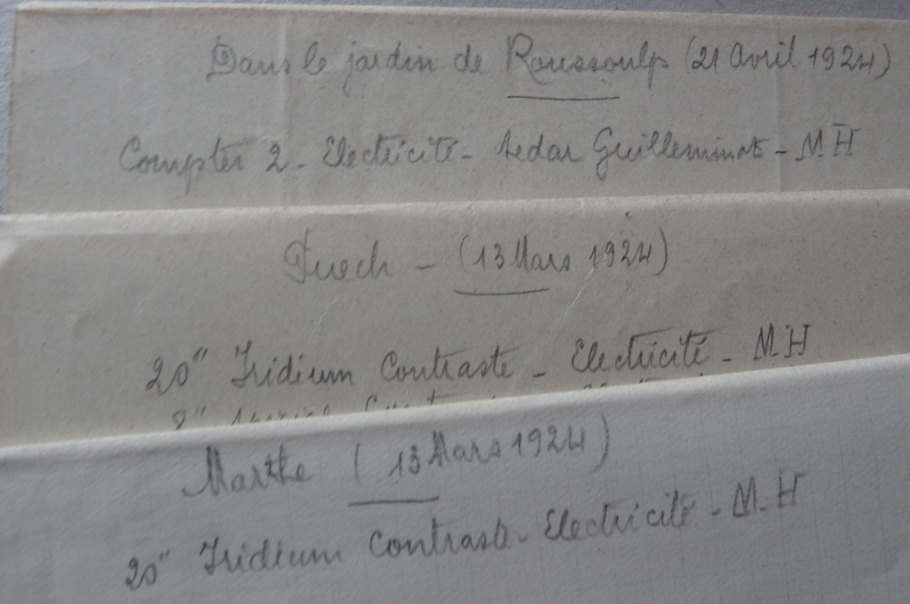 Dans le jardin de Roussoulp (21 Avril 1924)
Compter 2 - Electricité - Sedar Guilleminot - M H
Puech - (13 Mars 1924)
20" Iridium Contraste - Electricité - M H
Marthe (13 Mars 1924)
20" Iridium Contraste - Electricité - M. H